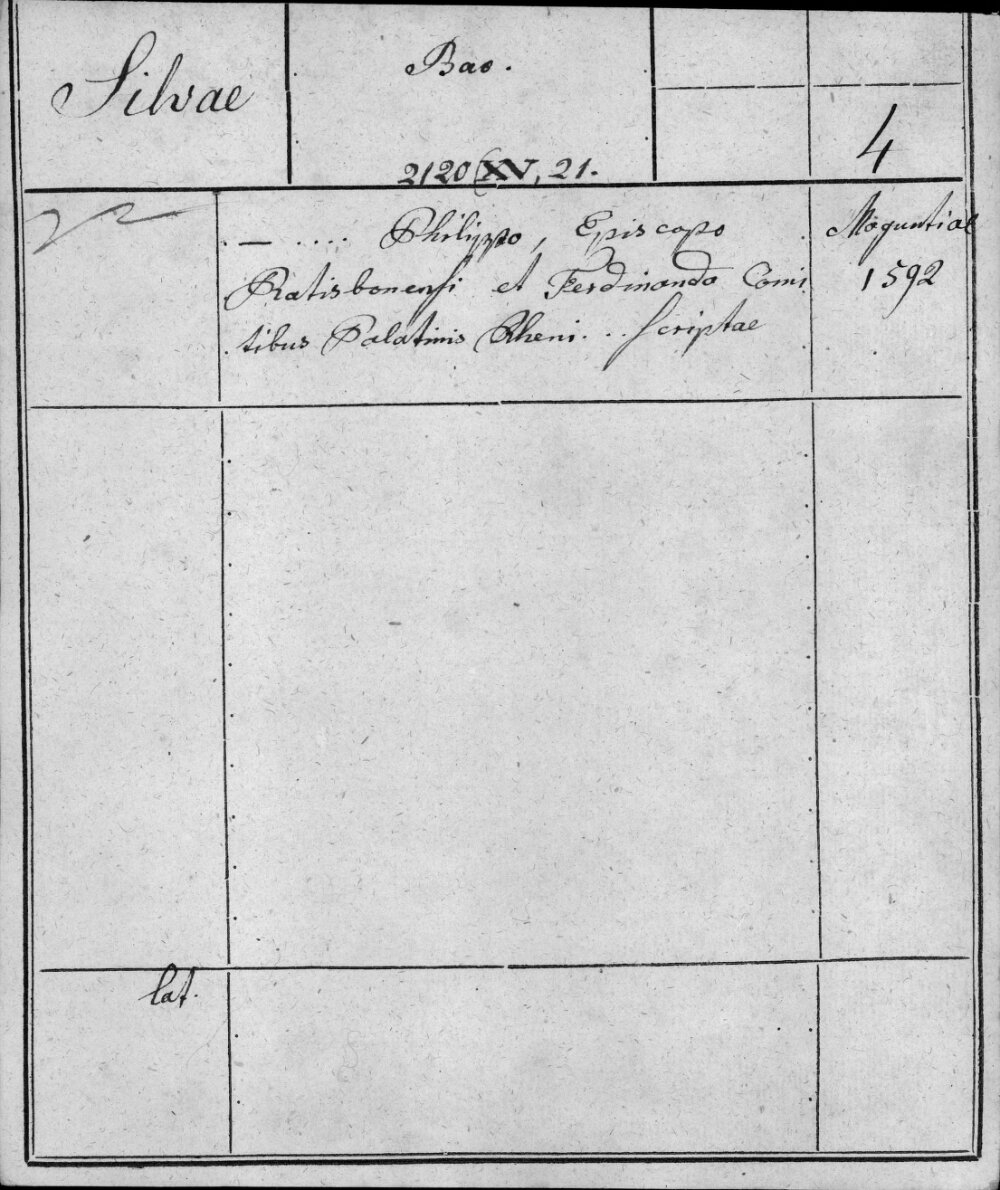 Silvae
Bav.
4
2120 (XV, 21.
— .... Philippo, Episcopo
Ratisbonensi et Ferdinando Comi
tibus Palatinis Rheni... scriptae
Moguntiae
1592
lat.